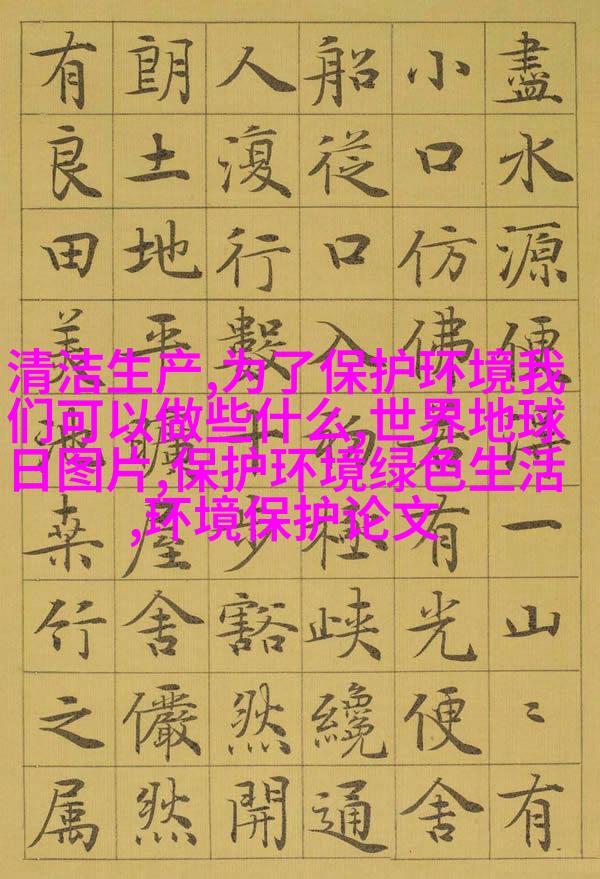 盡水源便得一山〻有
小口仿佛若有光便舍
船從口入初極峽纔通
人復行數十步豁然開
朗土地平曠屋舍儼然
有良田美池桑竹之属
清洁生产,为了保护环境我
们可以做些什么,世界地球
日图片,保护环境绿色生活
,环境保护论文